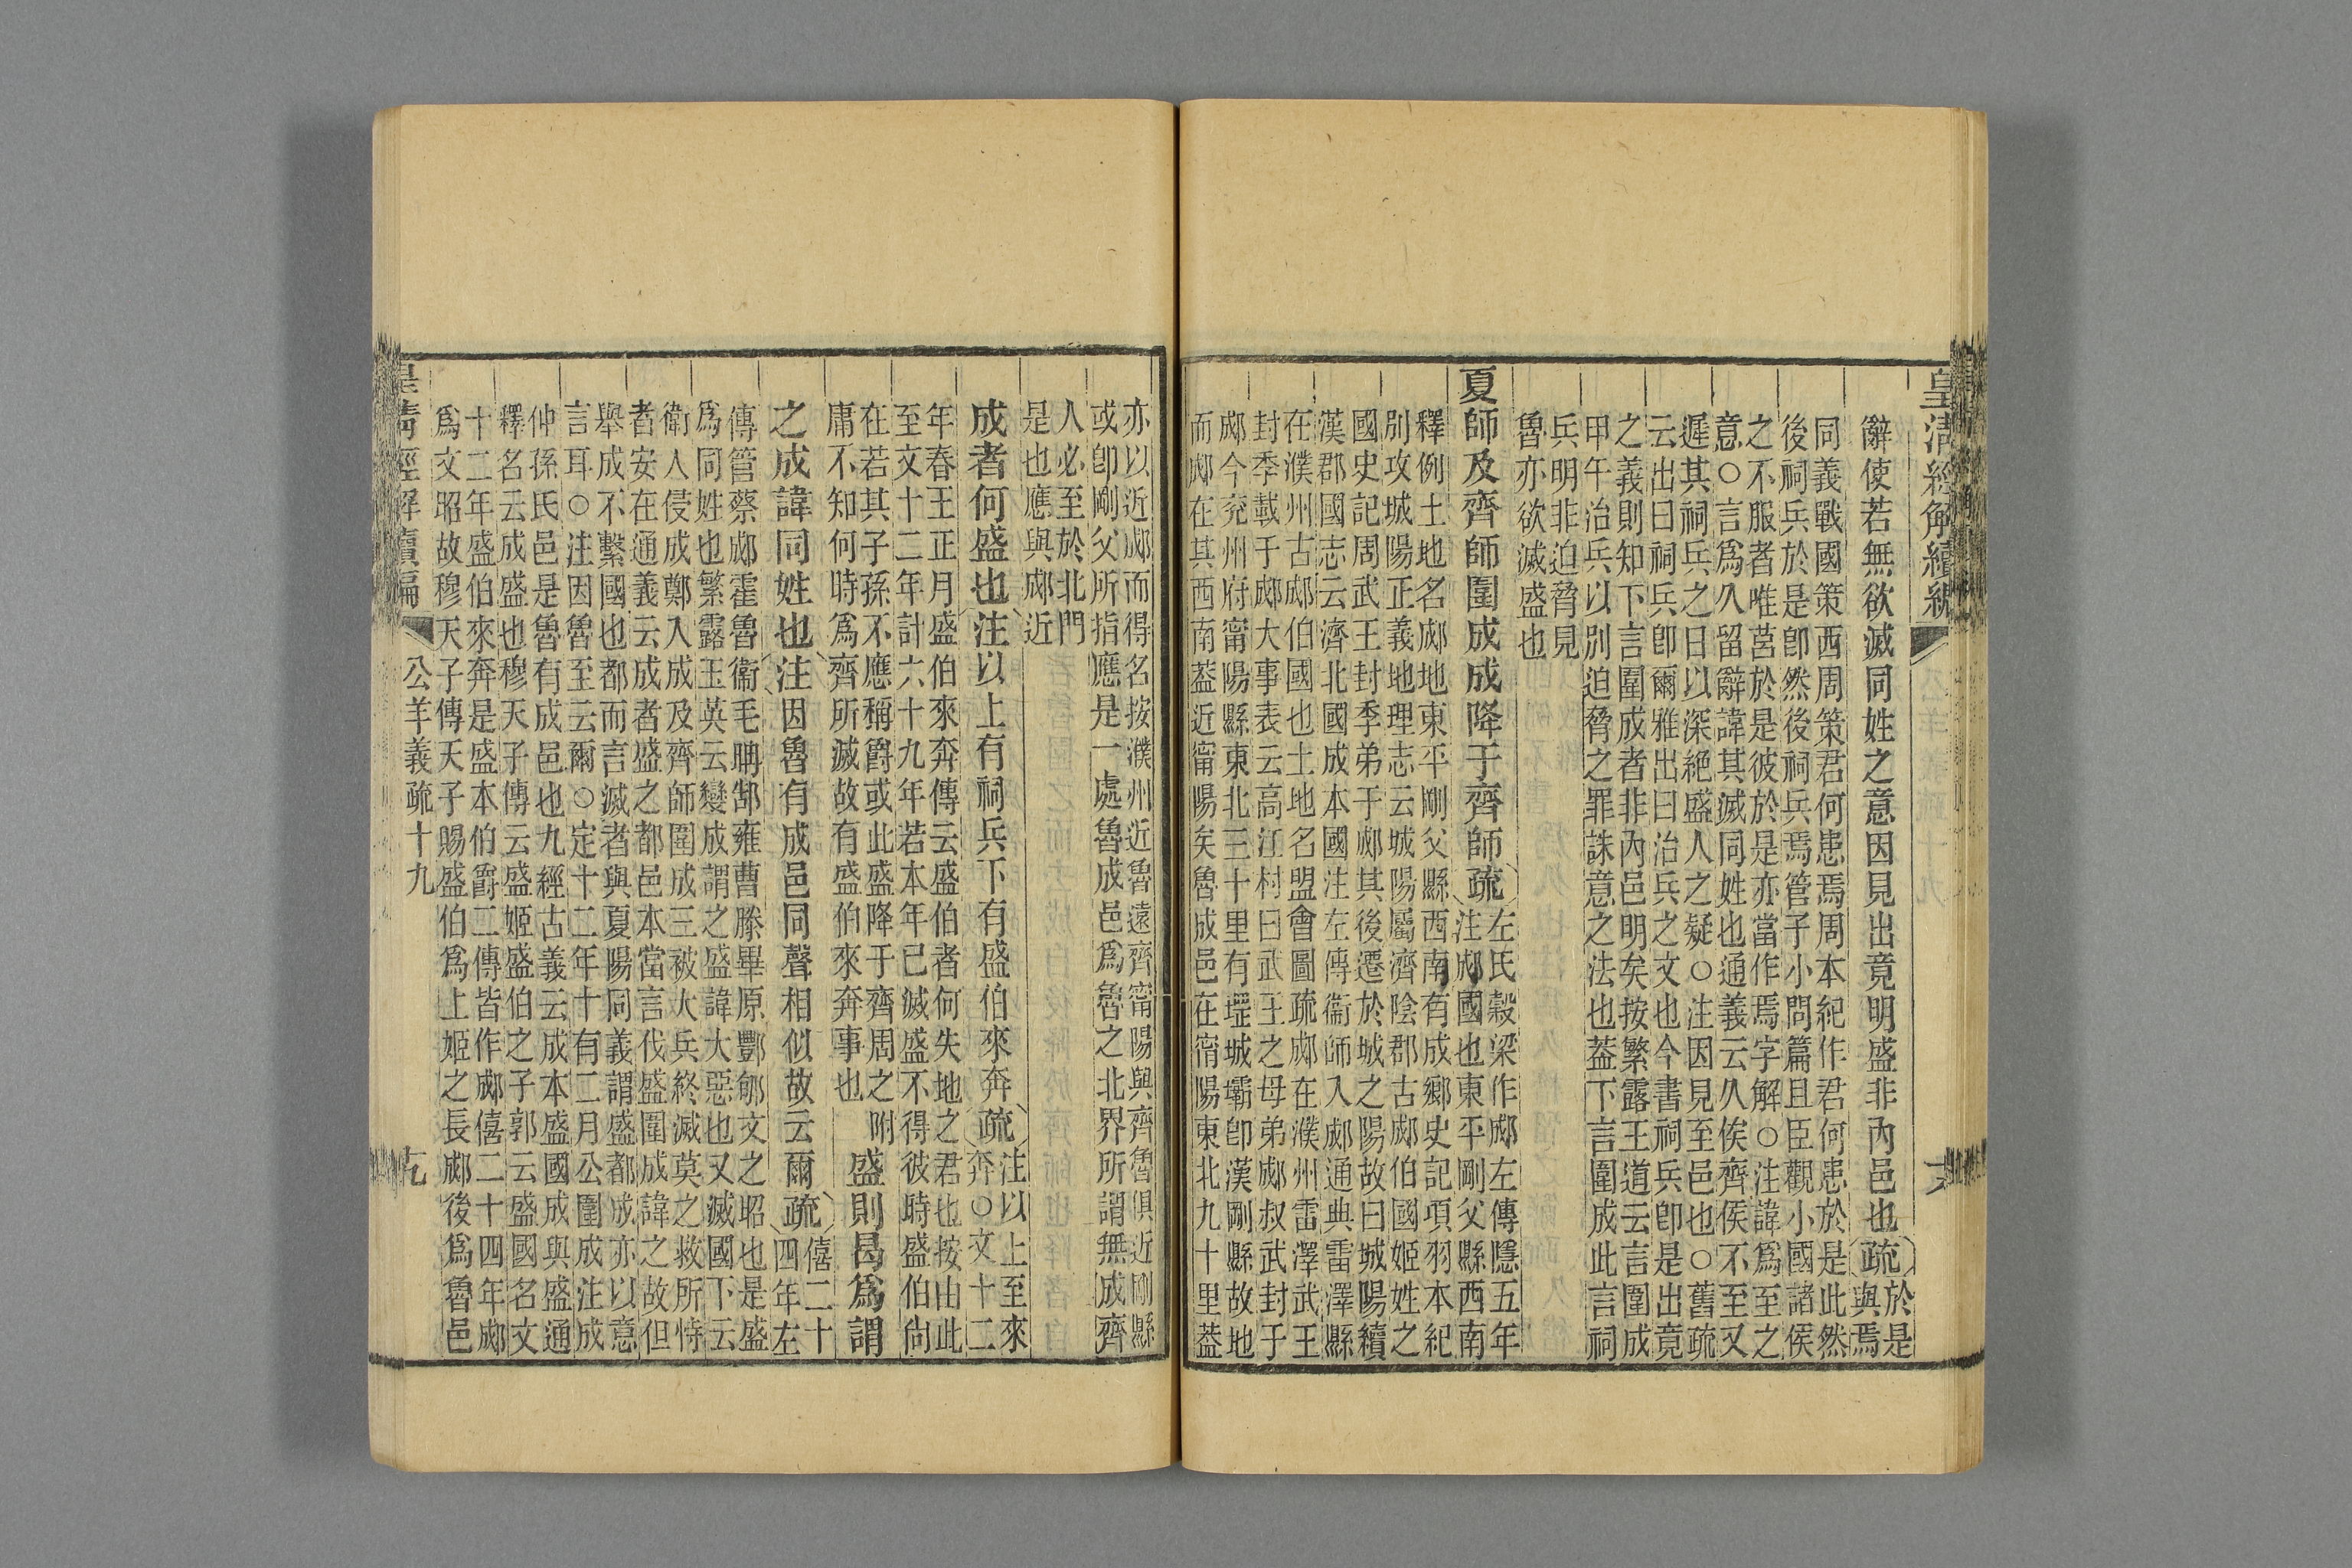 皇清經解續編
辭使若無欲滅同姓之意因見出竟明盛非內邑也疏於是
與焉
同義戰國策西周策君何患焉周本紀作君何患於是此然
後祠兵於是卽然後祠兵焉管子小問篇且臣觀小國諸侯
之不服者唯莒於是彼於是亦當作焉字解○注諱爲至之
意○言爲久留辭諱其滅同姓也通義云久俟齊侯不至又
遲其祠兵之日以深絕盛人之疑○注因見至邑也○舊疏
云出曰祠兵卽爾雅出曰治兵之文也今書祠兵卽是出竟
之義則知下言圍成者非內邑明矣按繁露王道云言圍成
甲午治兵以別迫脅之罪誅意之法也葢下言圍成此言祠
兵明非迫脅見
魯亦欲滅盛也
夏師及齊師圍成成降于齊師疏左氏穀梁作郕左傳隱五年
注郕國也東平剛父縣西南
釋例土地名郕地東平剛父縣西南有成鄉史記項羽本紀
別攻城陽正義地理志云城陽屬濟陰郡古郕伯國姬姓之
國史記周武王封季弟于郕其後遷於城之陽故曰城陽續
漢郡國志云濟北國成本國注左傳衞師入郕通典雷澤縣
在濮州古郕伯國也土地名盟會圖疏郕在濮州雷澤武王
封季載于郕大事表云高江村曰武王之母弟郕叔武封于
郕今兖州府甯陽縣東北三十里有堽城壩卽漢剛縣故地
而郕在其西南葢近甯陽矣魯成邑在甯陽東北九十里葢
亦以近郕而得名按濮州近魯遠齊甯陽與齊魯俱近剛縣
或卽剛父所指應是一處魯成邑爲魯之北界所謂無成齊
人必至於北門
是也應與郕近
成者何盛也注以上有祠兵下有盛伯來奔疏注以上至來
奔○文十二
年春王正月盛伯來奔傳云盛伯者何失地之君也按由此
至文十二年計六十九年若本年已滅盛不得彼時盛伯尙
在若其子孫不應稱爵或此盛降于齊周之附
庸不知何時爲齊所滅故有盛伯來奔事也
盛則曷爲謂
之成諱同姓也注因魯有成邑同聲相似故云爾疏僖二十
四年左
傳管蔡郕霍魯衞毛聃郜雍曹滕畢原酆郇文之昭也是盛
爲同姓也繁露玉英云變成謂之盛諱大惡也又滅國下云
衞人侵成鄭入成及齊師圍成三被大兵終滅莫之救所恃
者安在通義云成者盛之都邑本當言伐盛圍成諱之故但
舉成不繫國也都而言滅者與夏陽同義謂盛都成亦以意
言耳○注因魯至云爾○定十二年十有二月公圍成注成
仲孫氏邑是魯有成邑也九經古義云成本盛國成與盛通
釋名云成盛也穆天子傳云盛姬盛伯之子郭云盛國名文
十二年盛伯來奔是盛本伯爵二傳皆作郕僖二十四年郕
爲文昭故穆天子傳天子賜盛伯爲上姬之長郕後爲魯邑
皇清經解續編
公羊義疏十九